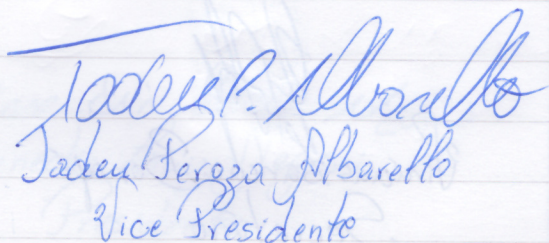 Tadeu P. Albarello
Tadeu Peroza Albarello
Vice Presidente